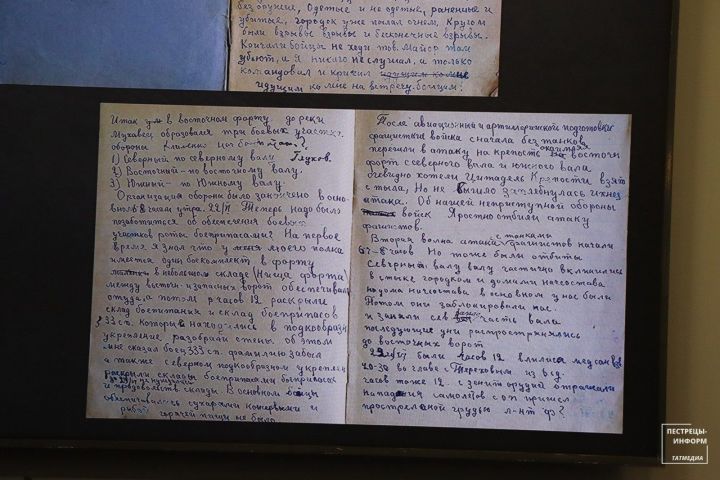 без оружие, Одетые и не одетый, раненные и
убитые, городок уже пылал огнем. Кругом
были взрывы взрывы и бесконечные взрывы.
Кричали бойцы не ходи тов. Майор там
убьют, и Я никого не слушал, и только
командовал и кричал идущим ко мне
идущим ко мне на встречу бойцам:
Итак в восточном форту до реки
Мухавец образовался три боевых участка
обороны
1) Северный по северному валу
2) Восточный - по восточному валу.
3) Южный - по Южному валу.
Организация обороны было закончено в осно-
вном 8 часам утра. 22/VI Теперь надо было
позаботится об обеспечении боевых
участков ротов боеприпасами? На первое
время я знал что у меня моего полка
имеется один боекомплект в форту
в небольшом складе (Ниша форта)
между восточн. и западных ворот обеспечивали
отсуда. потом часов 12 раскрыли
склад боепитания и склад боеприпасов
333 сп. которые находились в подкообразн
укреплении разобрали стены. об этом
мне сказал боец 333 сп. фамилию забыл
а также северном подкообразном укреплен
раскрыли склады боеприпасами боеприпасов
и продовольств. склады. В основном бойцы
обеспечивались сухарями консервами и
горячей пищи не было.
После авиационный и артиллерийской подготовки
фашистые войска сначала без танков
перешли в атаку на крепость восточн
форт северного вала и южного вала
очевидно хотели Цитадель Крепости взять
с тыла. Но не вышло захлебнулась ихнея
атака. Об нашей неприступный обороны
войск Яростно отбили атаку
фашистов.
с танками
Вторая волна атаки фашистов начали
67-8 часов Но тоже были отбиты
Северный валу валу частично вклинились
в стыке городком и домами начсостава
дома начсостава в основном у нас были
Потом они заблокировали нас.
и заняли сев часть вала
последующие дни распространялись
до восточных ворот
22/VI были часов 12 влилися медсанбат
20-30 во главе с Тереховым из 6 сд.
часов тоже 12. с зенит орудий отражали
нападения самолетов с оп пришел
простреленой грудью л-нт
ПЕСТРЕЦЫ-
ИНФОРМ
ТАТМЕДИА